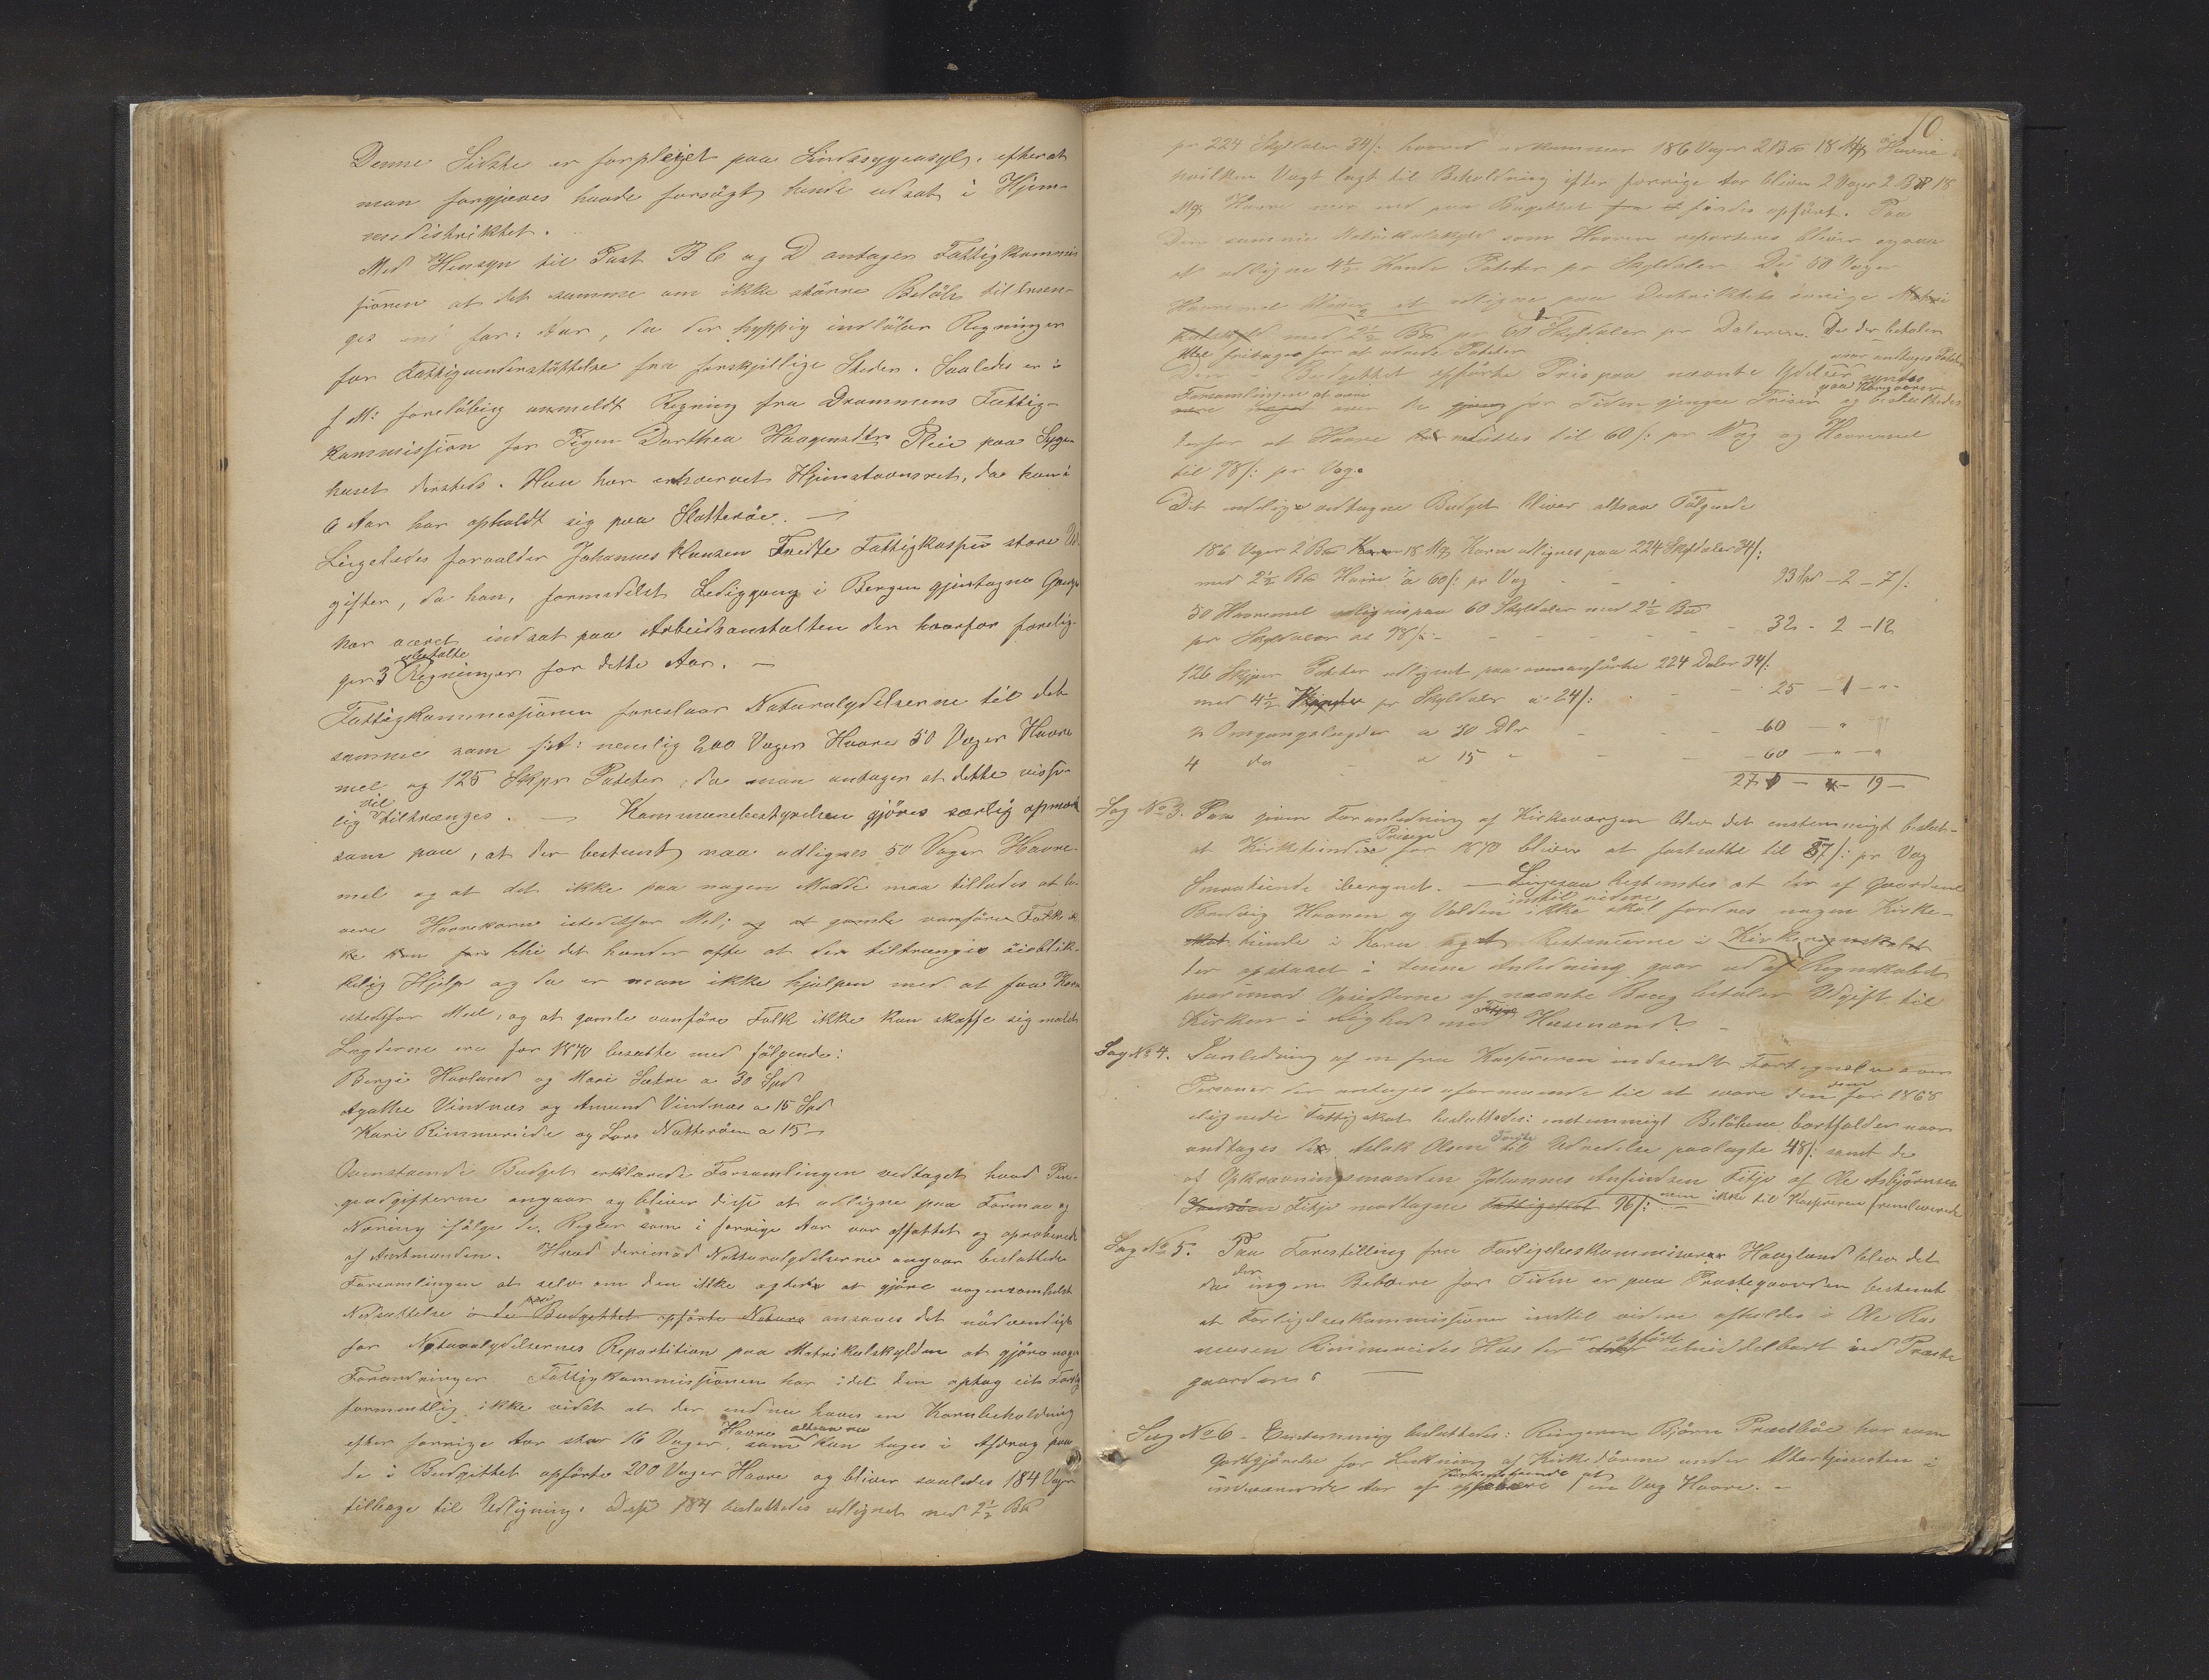 Denne Sidste er forpleiet paa Sindssygeasyl, efterat
man forgjæves havde forsøgt hende udsat i Hjem-
medistriktet.
Med Hensyn til Post B C og D antager Fattigkommis
sionen at det samme om ikke større Beløb til tren-
ges end for: Aar, da der hyppig indløber Regninger
for Fattigunderstøttelse fra forskjellige Steder. Saaledes er i
f M: foreløbig anmeldt Regning fra Drammens Fattig-
kommission for Pigen Dorthea Haagensdtrs Pleie paa Syge
huset dersteds. Hun har erhvervet Hjemstavnsret, da hun i
6 Aar har opholdt sig paa Slatterøe. —
Ligeledes forvolder Johannes Hansen Tvedte Fattigkassen store Ud
gifter, da han, formedelst Lediggang i Bergen gjentagne Gange
har været indsat paa Arbeidsanstalten der hvorfor forelig-
ger 3 ubetalte Regninger for dette Aar. —
Fattigkommissionen foreslaar Naturalydelserne til det
samme som f:A: nemlig 200 Voger Havre 50 Voger Havre
mel og 125 Skpr Poteter, da man antager at dette visse-
lig vil tiltrænges. — Kommunebestyrelsen gjøres særlig opmærk
som paa, at der bestemt maa udlignes 50 Voger Havre-
mel og at det ikke paa nogen Maade maa tillades at le-
vere Havrekorn istedetfor Mel; og at gamle vanføre Folk ik
ke kan thi det hænder ofte at der tiltrænges øieblik-
kelig Hjelp og da er man ikke hjulpen med at faa Korn
istedetfor Mel, og at gamle vanføre Folk ikke kan skaffe sig malet
Lægderne ere for 1870 besatte med følgende:
Berge Hovland og Mari Sætre a 30 Spd
Agathe Vindnæs og Amund Vindnæs a 15 Spd
Kari Rimmereide og Lars Natterøen a 15 —
Ovenstaaende Budget erklærede Forsamlingen vedtaget hvad Pen-
geudgifterne angaar og bliver disse at udligne paa Formue og
Næring ifølge de Regler som i forrige Aar var affattet og aproberede
af Amtmanden. Hvad derimod Naturalydelserne angaar besluttede
Forsamlingen at selv om den ikke agtede at gjøre nogensomhelst
Nedsættelse i de paa Budgettet opførte Natura ansaaes det nødvendigt
for Naturalydelsernes Repartition paa Matrikulskylden at gjøre nogen
Forandringer. Fattigkommissionen har idet den optog sit Forslag
formentlig ikke vidst at der endnu haves en Kornbeholdning
efter forrige Aar stor 16 Voger Havre som altsaa nu kan tages i Afdrag paa
de i Budgettet opførte 200 Voger Havre og bliver saaledes 184 Voger
tilbage til Udligning. Disse 184 besluttedes udlignet med 2½ B℔
10
pr 224 Skyldaler 34/: hvorved udkommer 186 Voger 2 B℔ 18 Mkr Havre
hvilken Vægt lagt til Beholdning efter forrige Aar bliver 2 Voger 2 B℔ 18
Mkr Havre mer end paa Bugettet findes opført. Paa
den samme Matrikulskyld som Havren reparteres bliver ogsaa
at udligne 4½ Kande Poteter pr Skyldaler De 50 Voger
Havremel bliver at udligne paa Distriktets øvrige Matri
kulskyld med 2½ B℔ pr 60 Skyldaler pr Daleren. De der betaler
Mel fritages for at udrede Poteter
Den i Budgettet opførte Pris paa nævnte Ydelser
Forsamlingen at være over de for Tiden gjængse Priser og besluttedes
derfor at Havre nedsættes til 60/: pr Vog og Havremel
til 78/: pr Vog.
Det endelige vedtagne Budget bliver altsaa Følgende
186 Voger 2 B℔ 18 Mkr Korn udlignes paa 224 Skyldaler 34/:
med 2½ B℔ Havre a 60/: pr Vog - - - 93 Spd – 2 – 7/:
50 Havremel udlignes paa 60 Skyldaler med 2½ B℔
pr Skyldaler a 78/: - - - - - - 32 – 2 – 12
126 Skjæpper Poteter udlignet paa ovenanførte 224 Daler 34/:
med 4½ pr Skyldaler a 24/: - - - 25 – 1 – „
2 Omgangslægder a 30 Dlr - - - 60 – „
4 do - a 15 „ - - - 60 – „ – „
27 – – 19 –
Sag No 3. Paa given Foranledning af Kirkeværgen blev det enstemmigt beslut-
at Kirketiendes Prisen for 1870 bliver at fastsætte til 57/: pr Vog
Smaatiende iberegnet. — Ligesaa bestemtes at der af Gaardene
Bondvig Havnen og Valden indtil videre ikke skal fordres nogen Kirke-
tiende i Korn og at Restancerne i Kirkeregnskabet
der opstaaet i denne Anledning gaar ud af Regnskabet
hvorimod Opsidderne af nævnte Brug betaler Udgift til
Kirken i Lighed med Husmænd.
Sag No 4. I Anledning af en fra Kassereren indsendt Fortegnelse over
Personer der antages uformuende til at svare den dem for 1868
ilignede Fattigskat besluttedes: enstemmigt Beløbene bortfalder naar
undtages de Aslak Olsen til Udredelse paalagte 48/: samt de
af Opkrævningsmanden Johannes Anfindsen Fitje af Ole Asbjørnsen
Fitje modtagne 96/: men ikke til Kassereren fremleverede
Sag No 5. Paa Forestilling fra Forligelseskommissær Haugland blev det
da der ingen Beboere for Tiden er paa Præstegaarden bestemt
at Forligelseskommissionen indtil videre afholdes i Ole Ras
musen Rimmereides Hus der er opført umiddelbart ved Præste
gaarden. —
Sag No 6 – Enstemmig besluttedes: Ringeren Bjørn Prestbøe har som
Godtgjørelse for Lukning af Kirkedørene under Altertjenesten i
indeværende Aar af Kirkens Tiende at oppebære 1 en Vog Havre. –